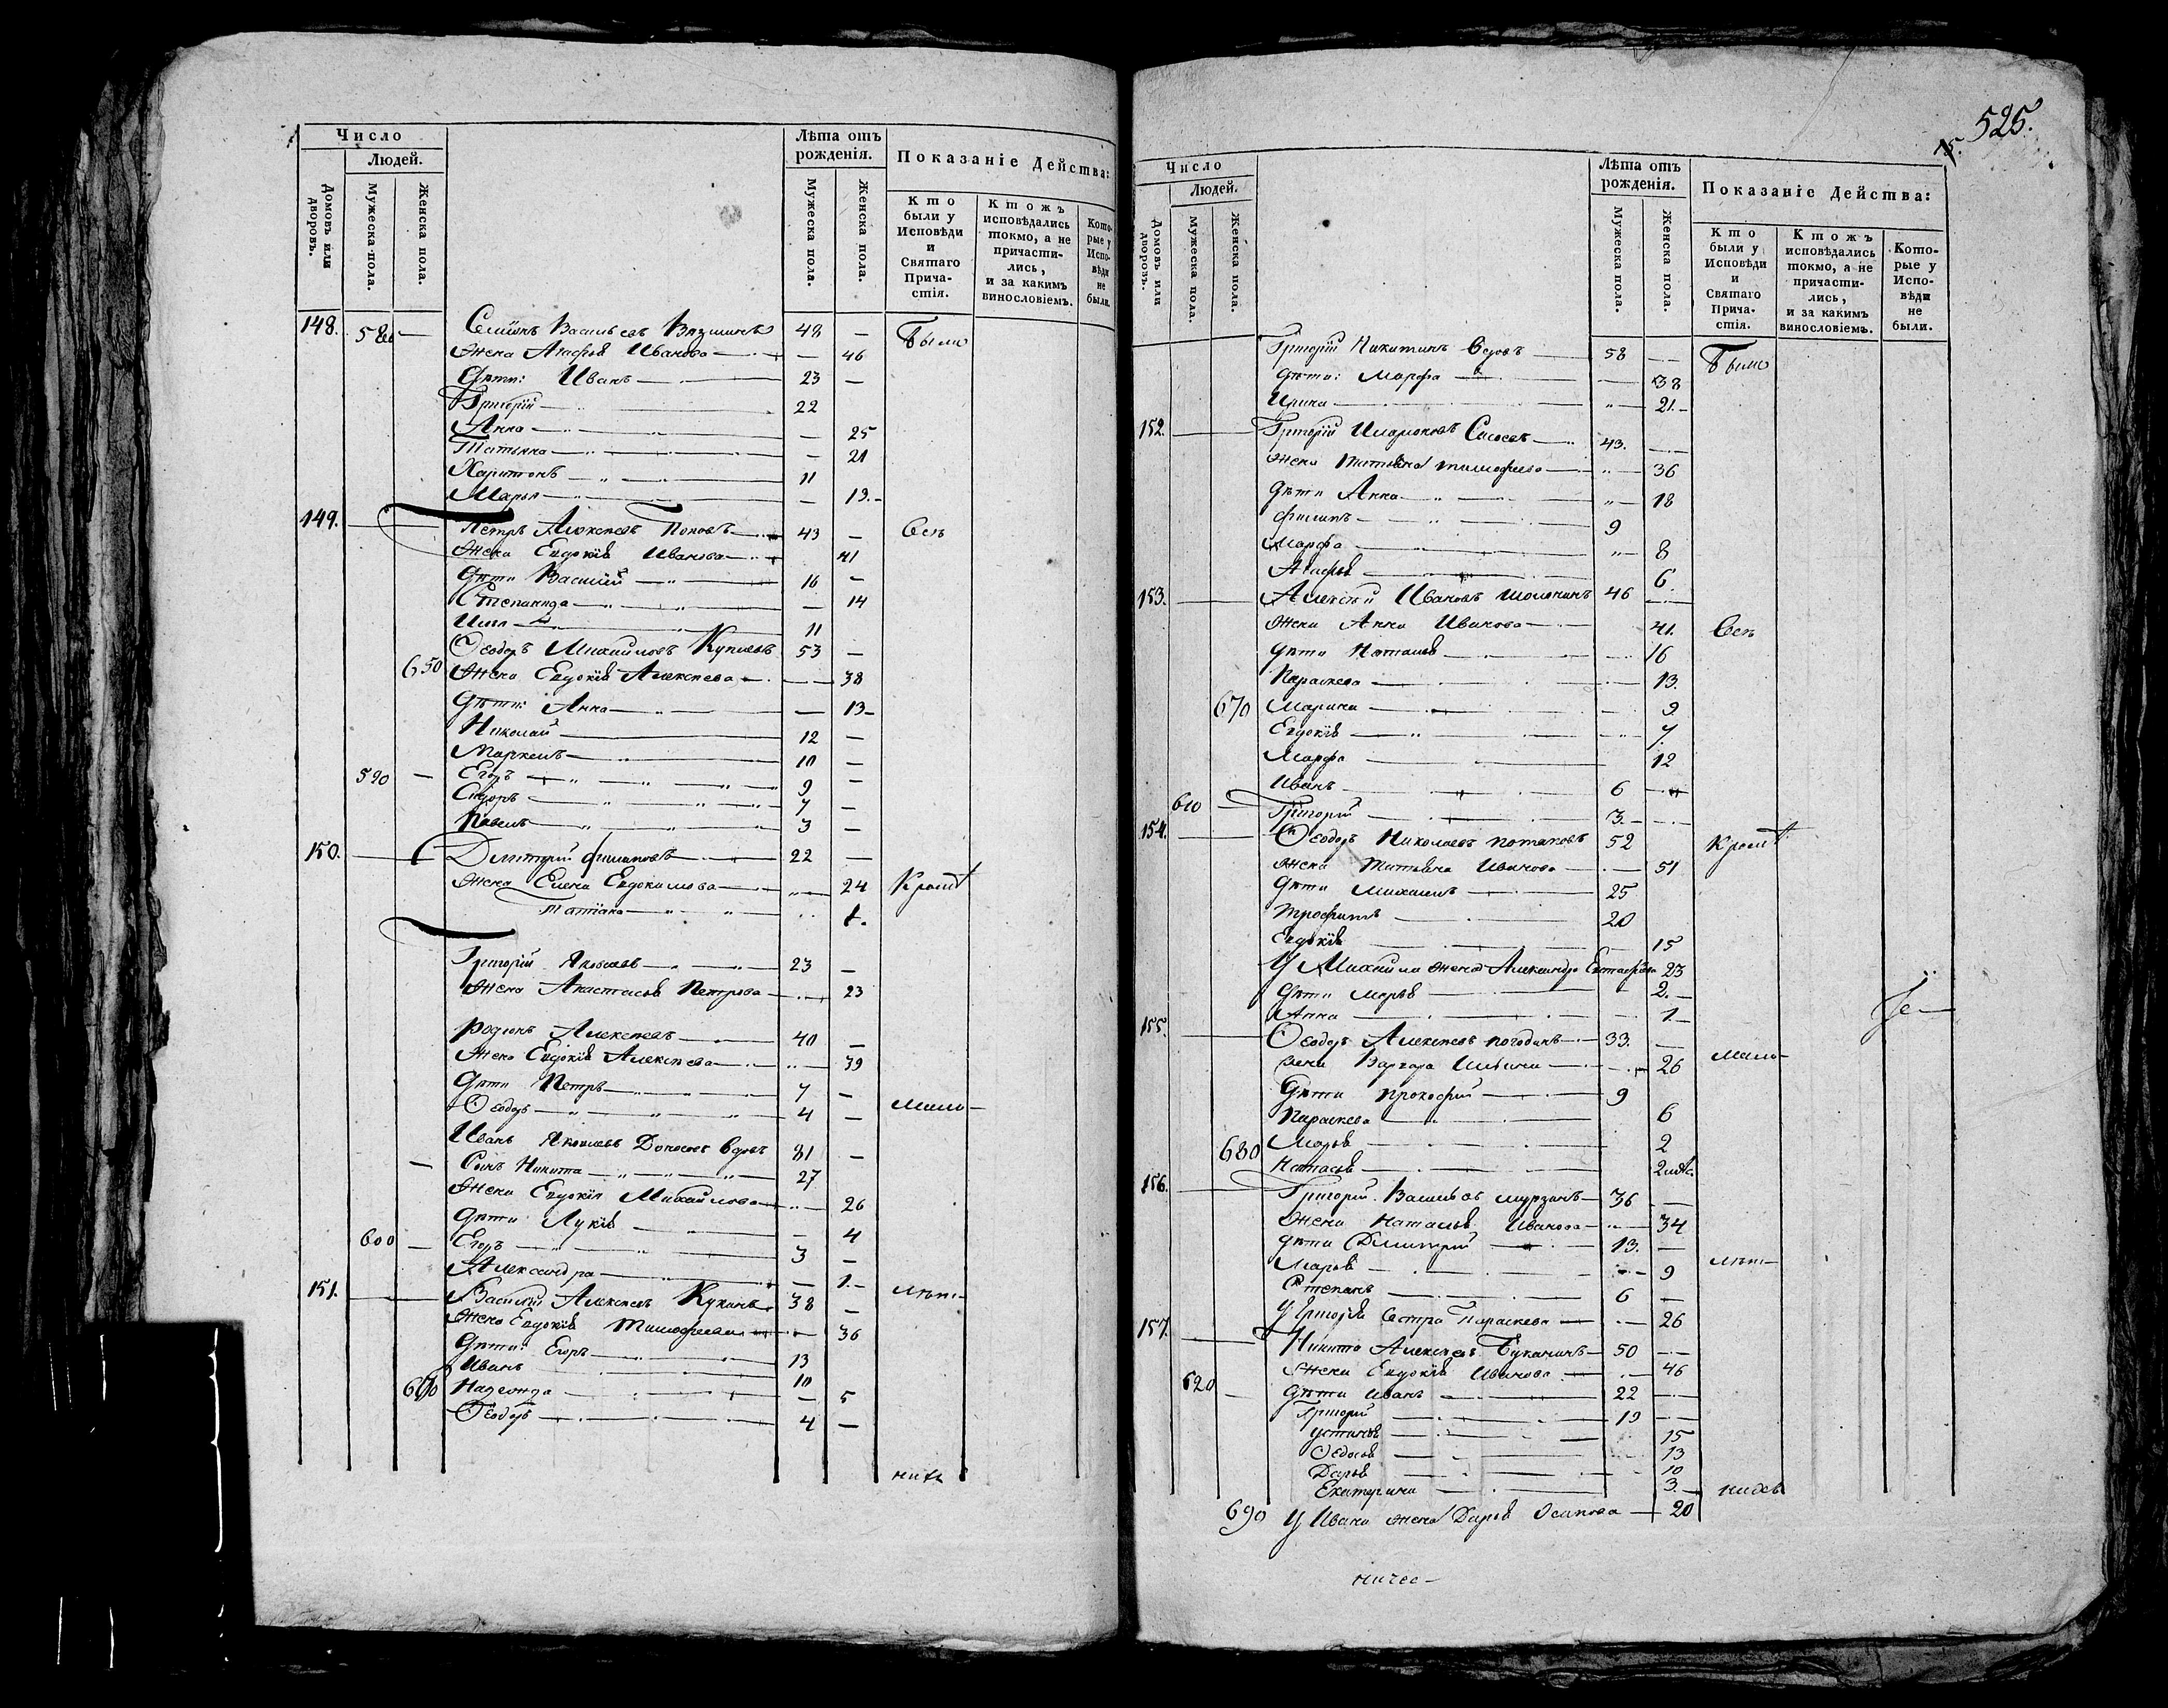 Число
Людей.
Домовъ или дворовъ.
Мужеска пола.
Женска пола.
Лѣта отъ рожденія.
Мужеска пола.
Женска пола.
Показаніе Действа:
Кто были у Исповѣди и Святаго Прича-стія.
Ктожъ исповѣдались токмо, а не причасти-лись, и за какимъ винословіемъ.
Кото-рые у Испо-вѣди не были.
148. Васильевъ 48 — были
Жена Агафья Иванова — 46
Дѣти: Иванъ 23 —
Григорій 22
Анна — 25
Татьяна — 21
Харитонъ 11
Марья — 13.
149. Петръ Алексѣевъ Поповъ 43 —
Жена Евдокія Иванова 41
Дѣти Василій 16 —
Степанида — 14
11
Ѳеодоръ Михайловъ 53 —
650 Жена Евдокія Алексѣева — 38
Дѣти: Анна — 13
Николай 12 —
Маркелъ 10 —
590 — Егоръ 9 —
7 —
Павелъ 3 —
150. Дмитрій Филиповъ 22 —
Жена Елена Евдокимова — 24
Татіана 1.
Григорій Яковлевъ 23 —
Жена Анастасья Петрова 23
Родіонъ Алексѣевъ 40 —
Жена Евдокія Алексѣева — 39
Дѣти Петръ 7 —
Ѳеодоръ 4 —
Иванъ Яковлевъ вдовъ 81 —
Сынъ Никита 27
Жена Евдокія Михайлова — 26
Дѣти Лукія — 4
600 — Егоръ 3 —
Александра — 1.
151. Василій Алексѣевъ 38 —
Жена Евдокія Тимофеева — 36
Дѣти: Егоръ 13
Иванъ 10
Надежда — 5
Ѳеодоръ 4 —
525.
15.
Число
Людей.
Домовъ или дворовъ.
Мужеска пола.
Женска пола.
Лѣта отъ рожденія.
Мужеска пола.
Женска пола.
Показаніе Действа:
Кто были у Исповѣди и Святаго Прича-стія.
Ктожъ исповѣдались токмо, а не причасти-лись, и за какимъ винословіемъ.
Кото-рые у Испо-вѣди не были.
Григорій Никитинъ вдовъ 58 — были
Дѣти: Марфа — 38
Ирина 21.
152. Григорій 43. —
Жена Татьяна Тимофеева — 36
Дѣти Анна 18
Филипъ 9
Марфа 8
Агафья 6.
153. Алексѣй Ивановъ 46 —
Жена Анна Иванова 41.
Дѣти Наталья 16
Параскева 13.
670 Марина 9
Евдокія 7.
Марфа 12
Иванъ 6
610 Григорій 3.
154. Ѳеодоръ Николаевъ Потаповъ 52
Жена Татьяна Иванова — 51
Дѣти Михаилъ 25
Трофимъ 20
Евдокія — 15
У Михаила жена Александра 23
Дѣти Марья 2.
Анна 1
155. Ѳеодоръ Алексѣевъ Погодинъ 33. —
Жена Варвара Ильина 26
Дѣти Прокофій 9
Параскева 6
680 Марья 2
2
156. Григорій Васильевъ Мурзинъ 36 —
Жена Наталья Иванова — 34
Дѣти Дмитрій 13. —
Марья 9
Степанъ 6 —
У Григорія сестра Параскева — 26
157. Никита Алексѣевъ 50 —
Жена Евдокія Иванова — 46
620 — Дѣти Иванъ 22 —
Григорій 19 —
Устинья 15
Ѳедосья 13
Дарья 10
Екатерина 3.
690 У Ивана жена Дарья Осипова — 20